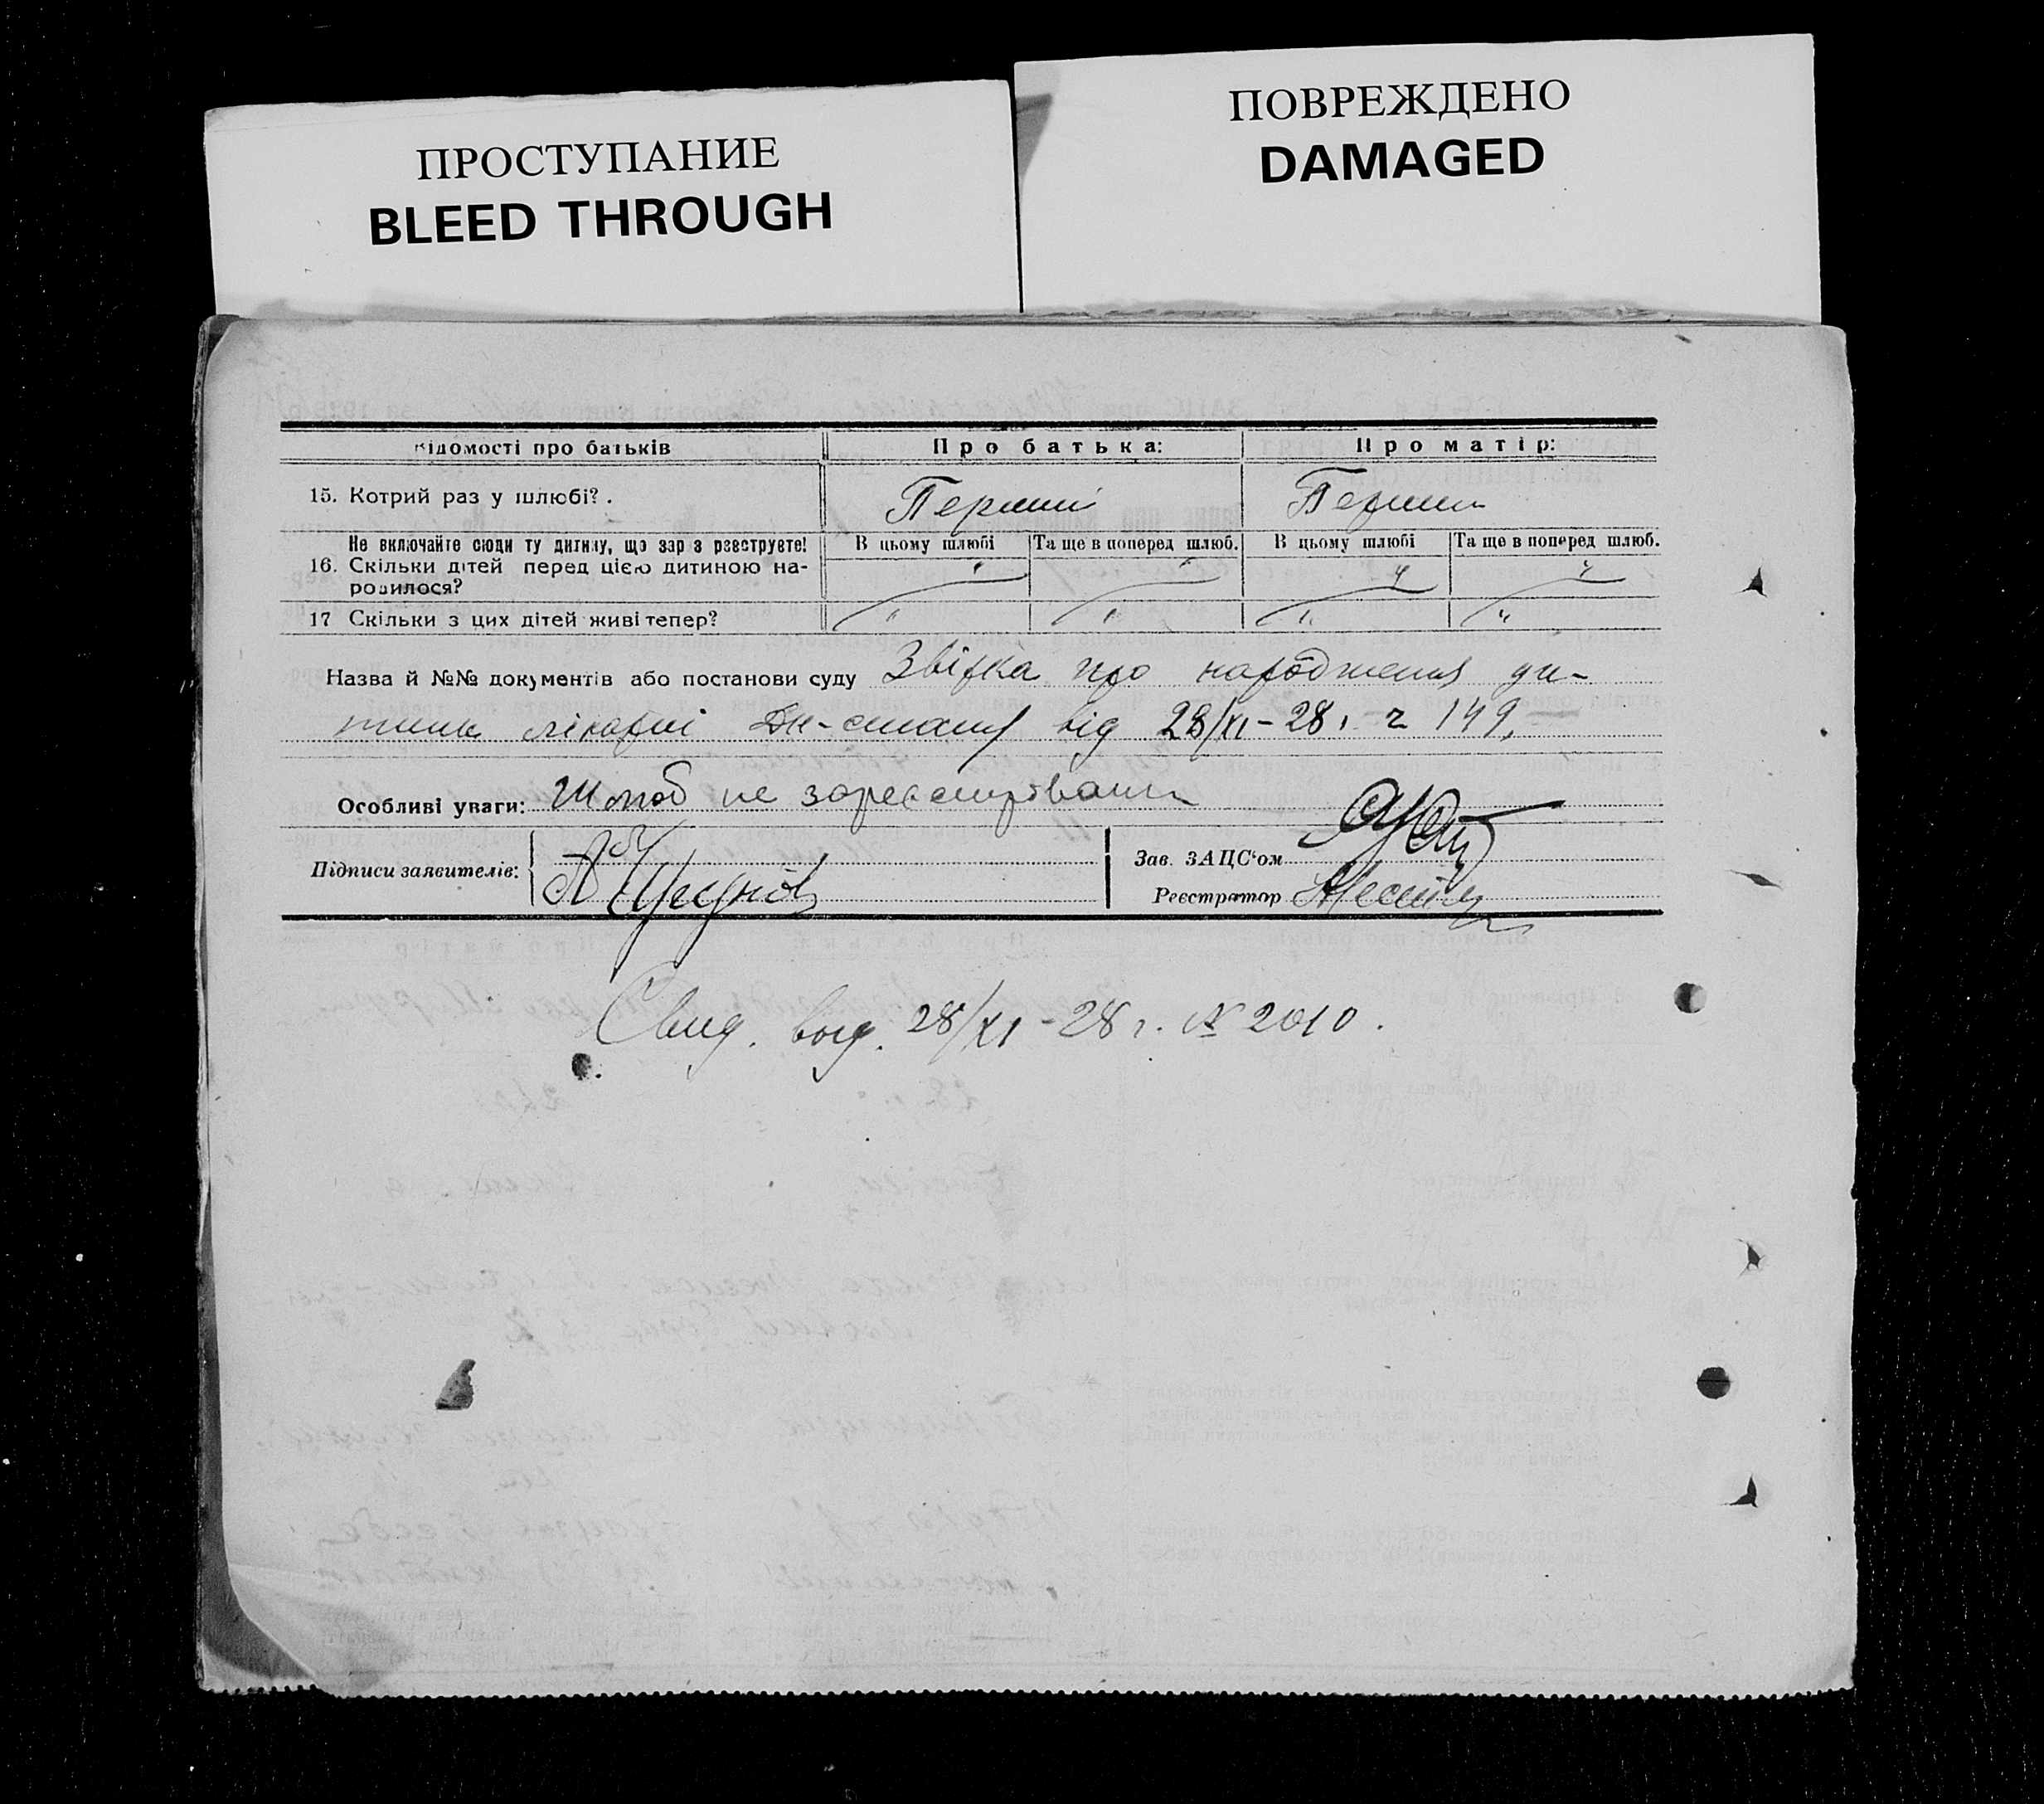 ПРОСТУПАНИЕ
BLEED THROUGH
ПОВРЕЖДЕНО
DAMAGED
Відомості про батьків Про батька: Про матір:
15. Котрий раз у шлюбі? . Перший Перший
Не включайте сюди ту дитину, що зараз реєструєте! В цьому шлюбі Та ще в поперед шлюб. В цьому шлюбі Та ще в поперед шлюб.
16. Скільки дітей перед цією дитиною на-
родилося?
17 Скільки з цих дітей живі тепер?
Назва й №№ документів або постанови суду Звірка про народження ди-
тини лікарні від 28/XI-28 г. 149.
Особливі уваги: Шлюб не зареєстрований
Підписи заявителів:
Зав. ЗАЦС‘ом
Реєстратор
Свид. выд. 28/XI-28 г. № 2010.